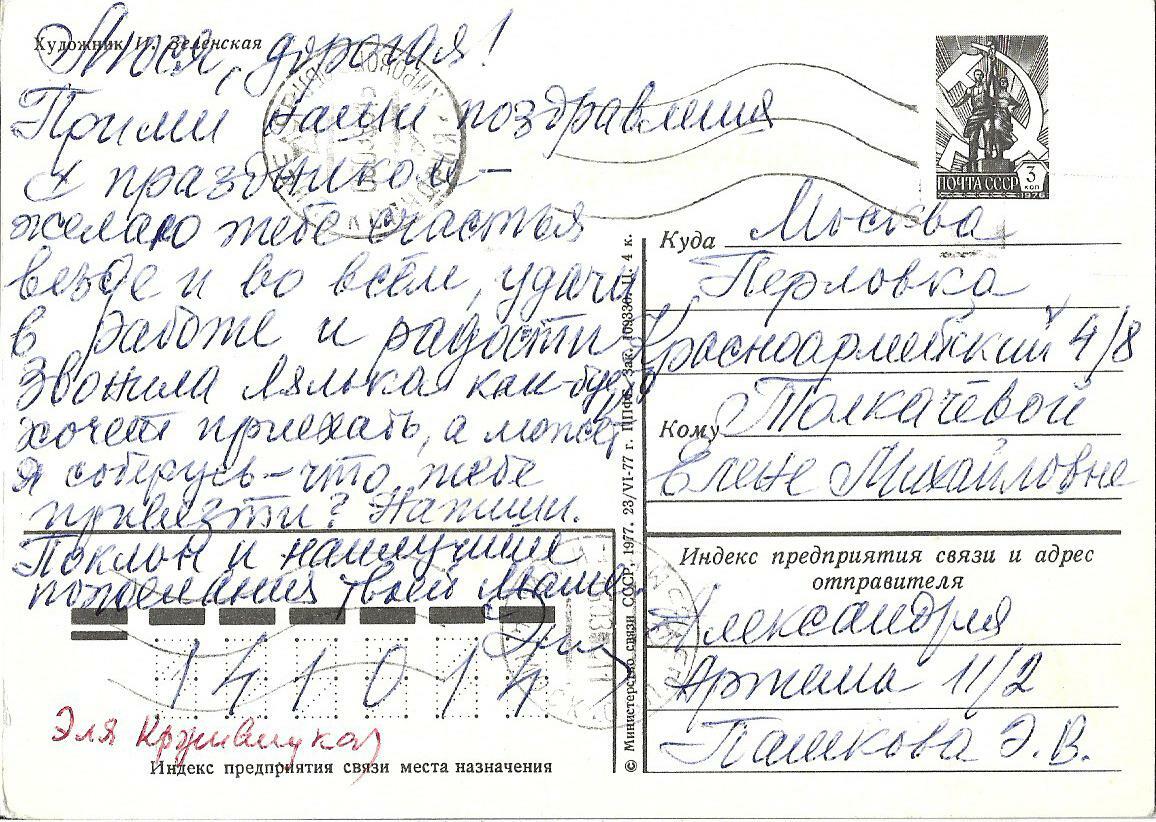 Художник И. Зеленская
Люся, дорогая!
Прими наши поздравления
с праздником —
желаю тебе счастья
везде и во всём, удачи
в работе и радости
Звонила Лялька как-будто
хочет приехать, а может
я соберусь — что тебе
привезти? Напиши.
Поклон и наилучшие
пожелания твоей маме.
Эля
141014
Эля Кружилиха)
Индекс предприятия связи места назначения
© Министерство связи СССР, 1977. 23/VI-77 г. ППФГ. Зак. Ц. 4 к.
ПОЧТА СССР 3 коп
1976
Куда Москва
Перловка
Красноармейский 4/8
Кому Толкачёвой
Елене Михайловне
Индекс предприятия связи и адрес
отправителя
Александрия
Артема 11/2
Пашкова Э. В.